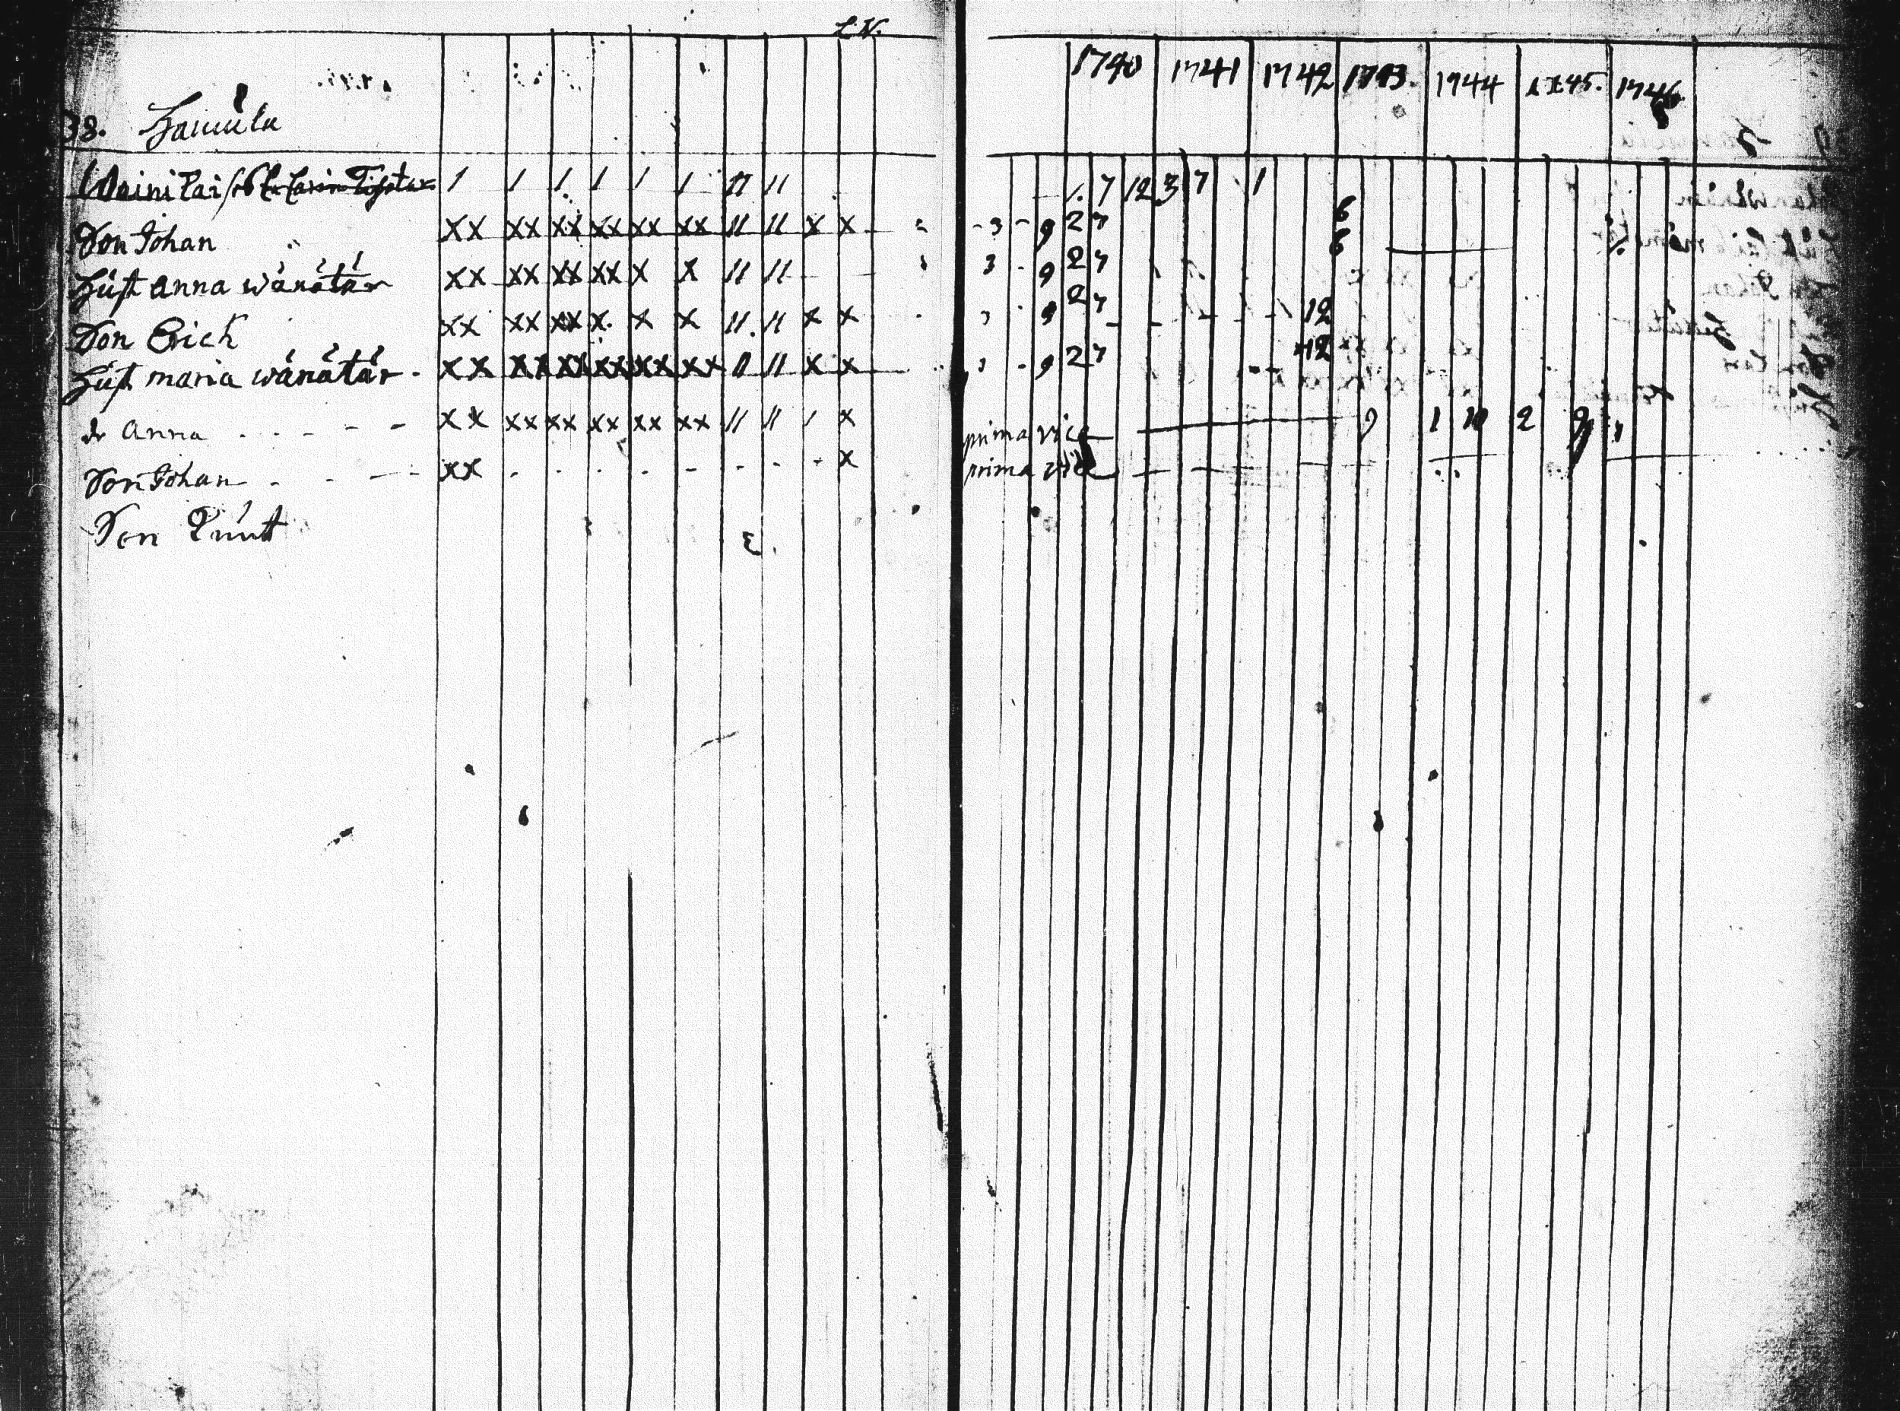 L N.
1740 1741 1742 1743. 1744 1745. 1746
38. Hamula
1 1 1 1 1 1 11 11 1. 7 12 3 7 1
Son Johan xx xx xx xx xx xx 11 11 x x - 3 - 9 2 7 6
Hust anna wänätär xx xx xx xx x x 11 11 3 - 9 2 7 6
Son Erich xx xx xx x. x x 11. 11 x x 3 9 2 7 12
Hust maria wänätär - xx xx xx xx xx xx 11 11 x x 3 - 9 2 7 12
dr anna xx xx xx xx xx xx 11 11 1 x prima vice 9 1 10 2 9
Son Johan xx x prima vice
Son Knut